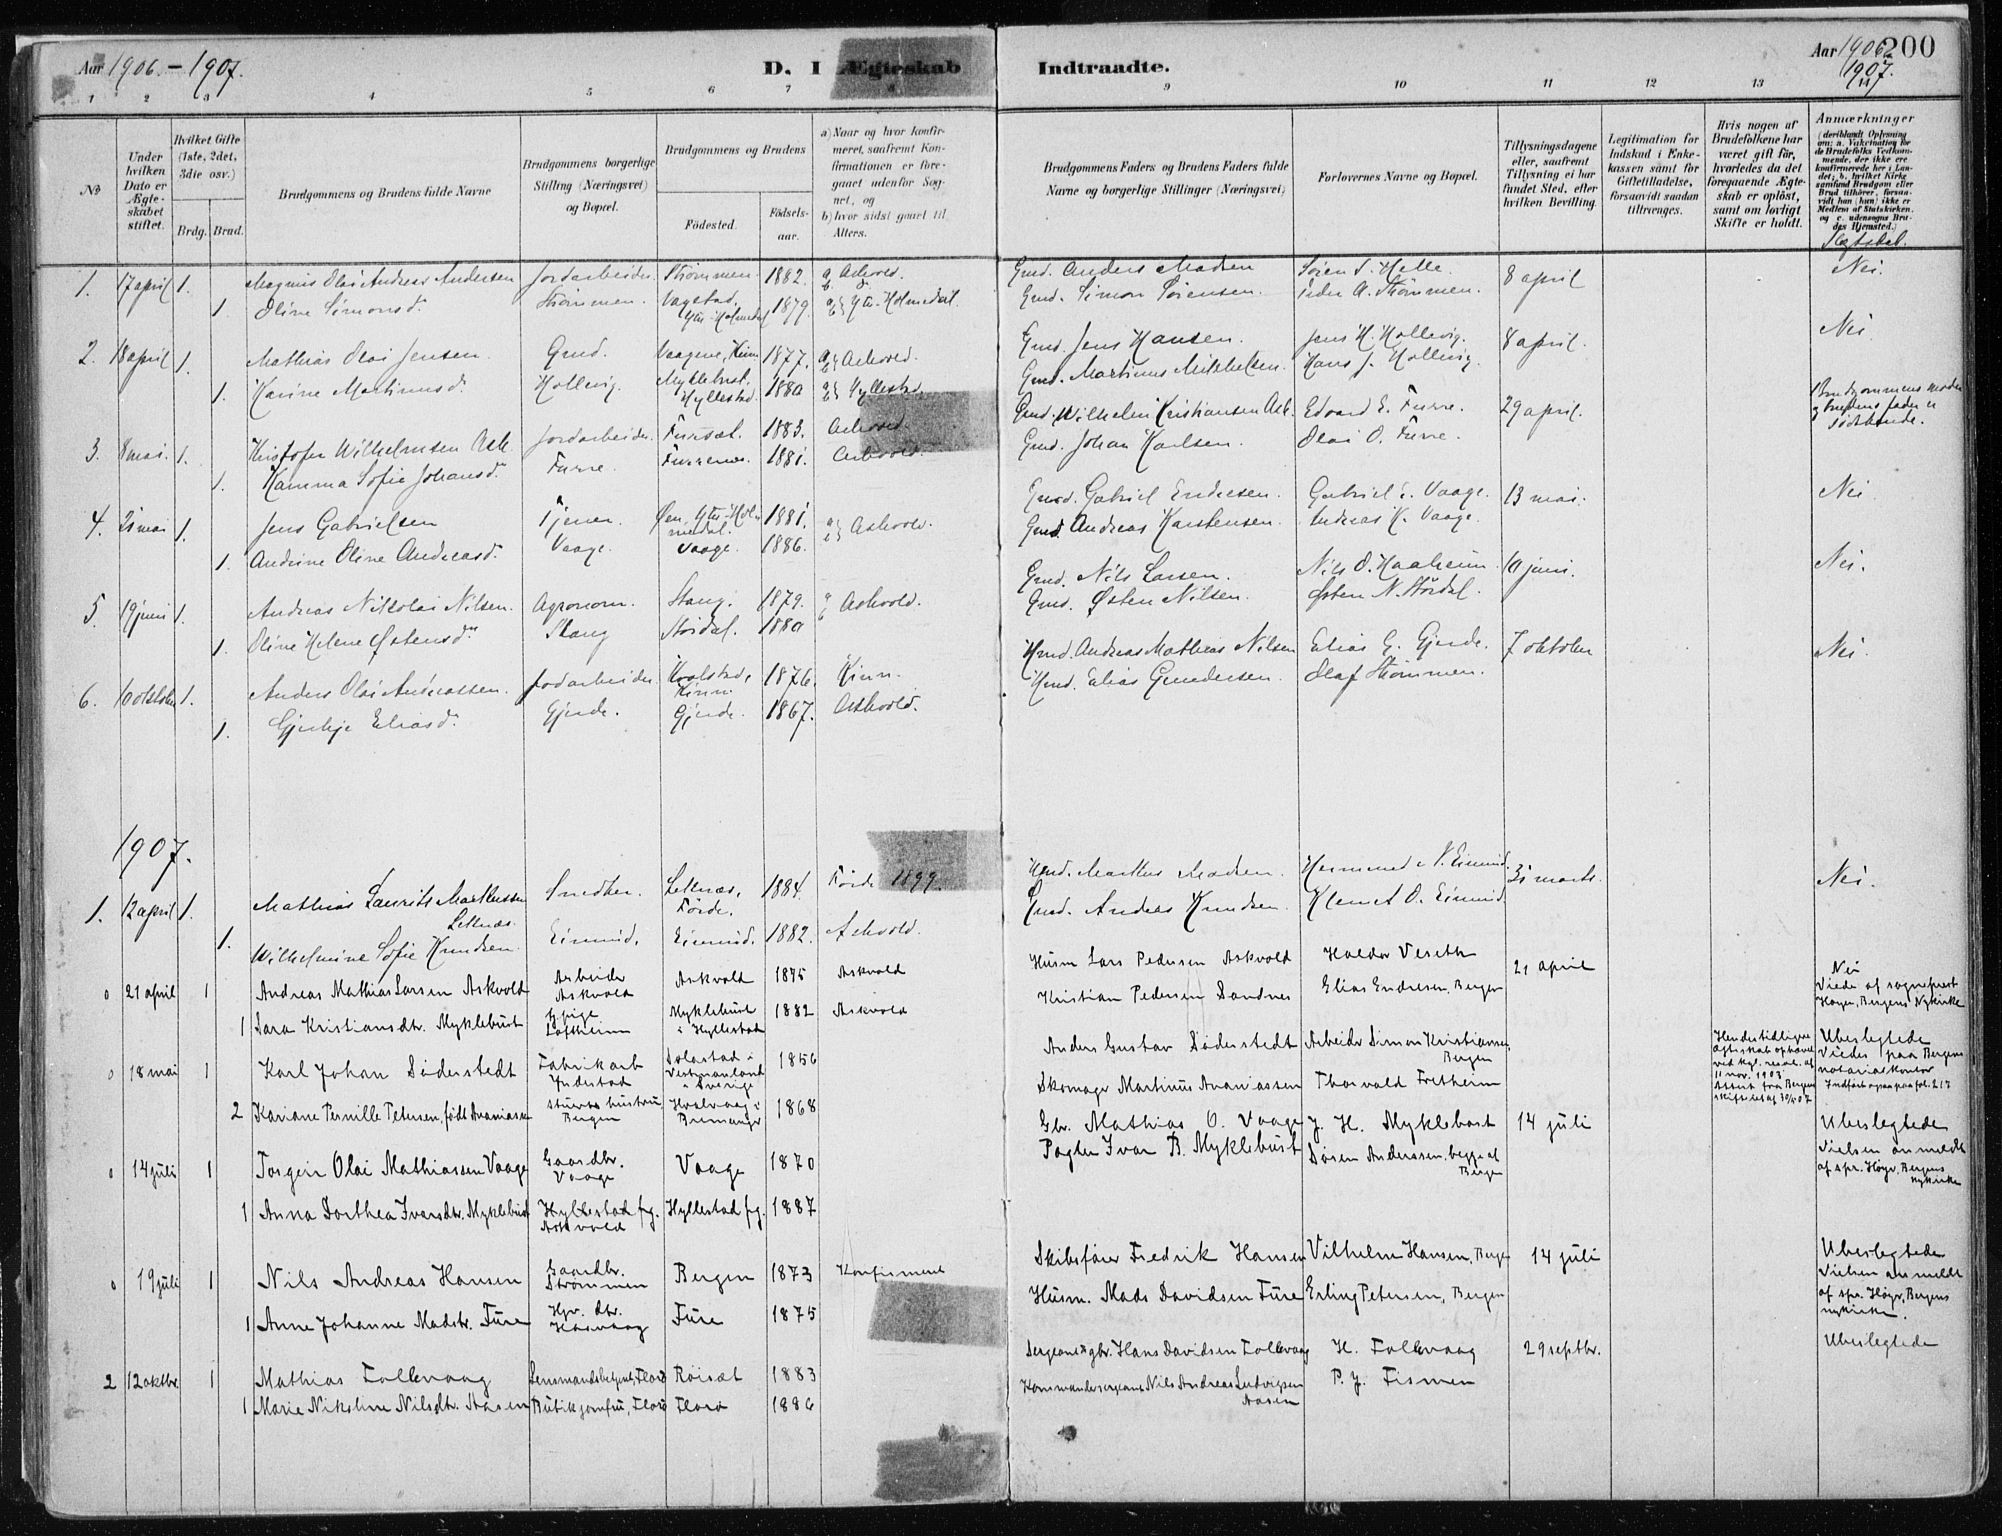 Aar 1906.-1907.
D. I Ægteskab Indtraadte.
Aar 1906. 1907. 200
1 2 3 4 5 6 7 8 9 10 11 12 13 14
No
Under hvilken Dato er Ægteskabet stiftet.
Hvilket Gifte (1ste, 2det, 3die osv.)
Brdg. Brud.
Brudgommens og Brudens fulde Navne
Brudgommens borgerlige Stilling (Næringsvei) og Bopæl.
Brudgommens og Brudens
Fødested.
Fødselsaar.
a) Naar og hvor konfirmeret, saafremt Konfirmationen er foregaaet udenfor Sognet, og
b) hvor sidst gaaet til Alters.
Brudgommens Faders og Brudens Faders fulde Navne og borgerlige Stillinger (Næringsvei)
Forlovernes Navne og Bopæl.
Tillysningsdagene eller, saafremt Tillysning ei har fundet Sted, efter hvilken Bevilling.
Legitimation for Indskud i Enkekassen samt for Giftetilladelse, forsaavidt saadan tiltrænges.
Hvis nogen af Brudefolkene har været gift før, hvorledes da det foregaaende Ægteskab er opløst, samt om lovligt Skifte er holdt.
Anmærkninger
(deriblandt Oplysning om: a. Vakcination for de Brudefolks Vedkommende, der ikke ere konfirmerede her i Landet; b. hvilket Kirkesamfund Brudgom eller Brud tilhører, forsaavidt han (hun) ikke er Medlem af Statskirken, og c. udensogns Brudes Hjemsted.)
Slegtskab.
1. 17 april 1. Magnus Olai Andreas Andersen Jordarbeider Strømmen 1882. a Askvold. Gmd. Anders Madsen Søren S. Helle 8 april Nei.
1. Oline Simonsd. Strømmen. Vagstad, Ytr-Holmedal 1879. Ytr-Holmedal Gmd. Simon Sørensen. Peder A. Strømmen.
2. 18 april 1. Mathias Olai Jensen. Gmd. Vaagene, Kinn 1877. Askvold. Gmd. Jens Hansen. Jens H. Hollevig. 8 april. Nei
1. Karine Martinusd. Hollevig. Myklebust. Hyllestad. 1880 Hyllestad. Gmd. Martinus Mikkelsen. Hans J. Hollevig.
3. 8 mai. 1. Kristofer Wilhelmsen Ask Jordarbeider. Furesæt. 1883. Askvold. Gmd. Wilhelm Kristiansen Ask. Edvard E. Furre. 29 april. Brudgommens moder og brudens fader er sødskende.
1. Hamma Sofie Johansd. Furre. Furrenes 1881. Askvold. Gmd. Johan Karlsen. Olai O. Furre.
4. 21 mai 1. Jens Gabrielsen Tjener. Øen, Ytr-Holmedal. 1881. Askvold. Gmd. Gabriel Endresen. Gabriel E. Vaage. 13 mai. Nei
1. Andrine Oline Andreasd. Vaage. Vaage. 1886. Gmd. Andreas Karstensen. Andreas K. Vaage.
5. 19 juni 1. Andreas Nikolai Nilsen. Agronom. Stang. 1879. Askvold. Gmd. Nils Larsen. Nils O. Haaheim 10 juni. Nei.
1. Oline Helene Østensd. Stang Stordal. 1880 Gmd. Østen Nilsen. Østen N. Stordal.
6. 10 oktober 1. Anders Olai Andreassen. Jordarbeider. Kvalstad, Kinn. 1876. Kinn. Hmd. Andreas Mathias Nilsen Elias G. Gjerde. 7 oktober Nei.
1. Gjertje Eliasd. Gjerde. Gjerde. 1867. Askvold. Hmd. Elias Gundersen. Olaf Strømmen.
1907.
1. 12 april 1. Mathias Laurits Markussen Letnæs. Snedker. Letnæs, Førde. 1884. Førde 1899. Hmd. Markus Madsen. Hermund N. Eimind. 31 marts. Nei.
1. Wilhelmine Sofie Knudsen. Eimind. Eimind. 1882. Askvold. Gmd. Andreas Knudsen. Klemet O. Eimind
0 21 april 1 Andreas Mathias Larsen Askvold Arbeider Askvold Askvold 1875 Askvold Husm Lars Pedersen Askvold Haldor Veseth 21 april Nei Viede af sogneprest Høyer, Bergens Nykirke
1 Sara Kristiansdtr. Myklebust Pige Loftheim Myklebust i Hyllestad 1882 Askvold Kristian Pedersen Sandnes Elias Endresen, Bergen
0 18 mai 1 Karl Johan Söderstedt Fabrikarb Yndestad Salastad i Vestmanland i Sverige 1856 Anders Gustav Söderstedt Arbeider Simon Kristiansen, Bergen Hendes tidligere ægteskab ophævet ved kgl. resol. af 11 nov. 1903 Attest fra Bergens skifteret af 30/4 07 Ubeslegtede Viedes paa Bergens notariatkontor Indført ogsaa paa fol. 217
2 Kariane Pernille Petersen, født Ananiassen stuerts hustru, Bergen Hvalvaag i Bremanger 1868 Skomager Martinus Ananiassen Thorvald Fretheim
0 14 juli 1 Torgeir Olai Mathiassen Vaage Gaardbr. Vaage Vaage 1870 Gbr. Mathias O. Vaage J. H. Myklebost 14 juli Ubeslegtede Vielsen anmeldt af spr. Høyer, Bergens nykirke
1 Anna Dorthea Ivarsdtr. Myklebust Hyllestad pg. Askvold Hyllestad pg. 1887 Pagter Ivar B. Myklebust Søren Anderssen, begge af Bergen
0 19 juli 1 Nils Andreas Hansen Gaardbr. Strømmen Bergen 1873 Konfirmeret Skibsfører Fredrik Hansen Vilhelm Hansen, Bergen 14 juli Ubeslegtede Vielsen anmeldt af spr. Høyer, Bergens nykirke.
1 Anne Johanne Madsdtr. Fure Fure 1875 Husm. Mads Davidsen Fure Erling Petersen, Bergen
2 12 oktbr 1 Mathias Follevaag Lensmandsbetjent, Florø Røisæt 1883 Sergeant, gbr. Hans Davidsen Follevaag H. Follevaag 29 septbr. Ubeslegtede
1 Marie Nikoline Nilsdtr. Aasen Butikjomfru, Florø Florø 1886 Kommandersergeant Nils Andreas Ludvigsen Aasen P. J. Fismen